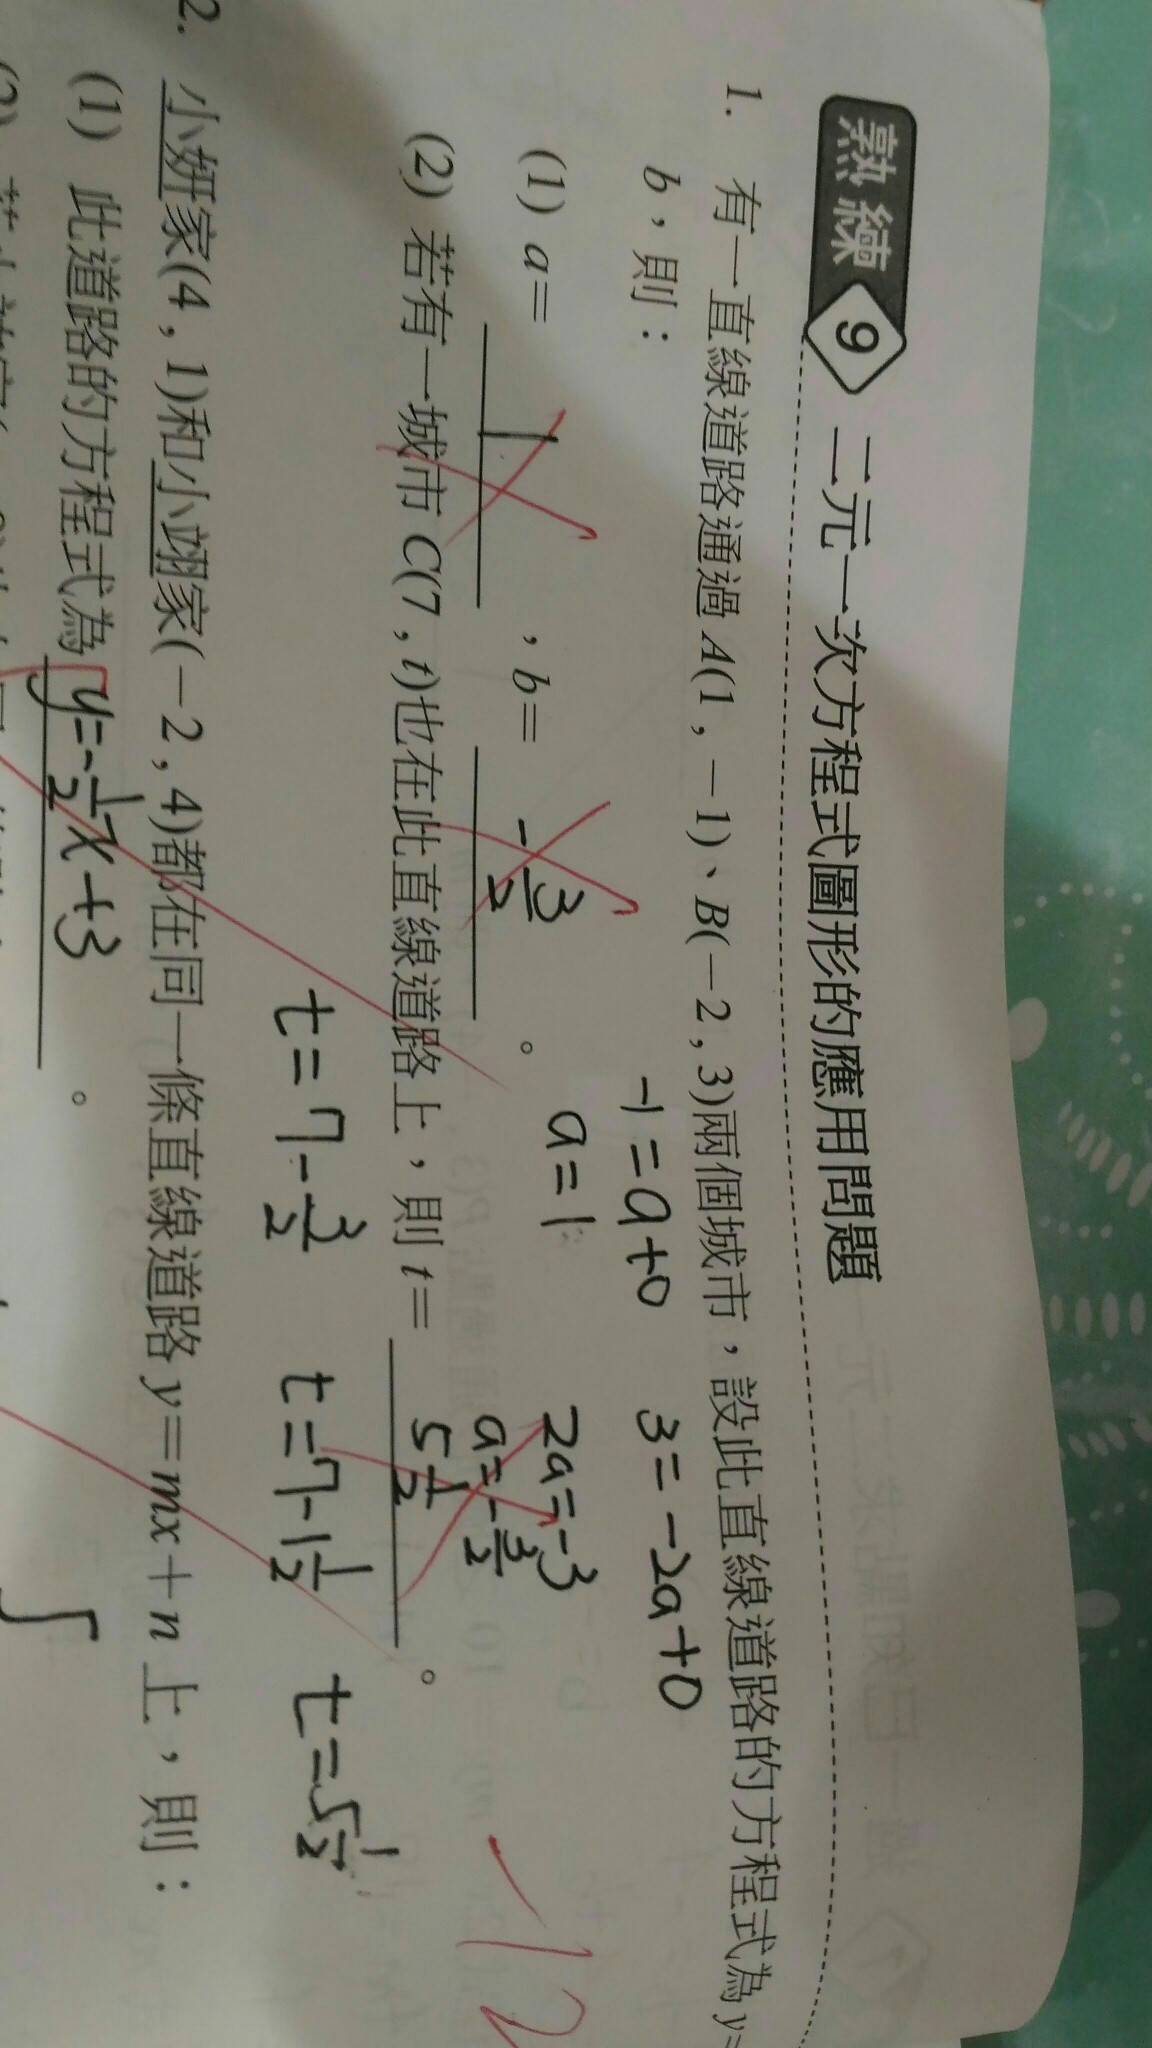 熟練 9 二元一次方程式圖形的應用問題
1. 有一直線道路通過 A(1 , －1)、B(－2 , 3)兩個城市，設此直線道路的方程式為 y=
b，則：
-1=a+0 3=-2a+0
(1) a= 1 ，b= -3/2 。
a=1 2a=-3
a=-3/2
(2) 若有一城市 C(7 , t)也在此直線道路上，則 t= 5 1/2 。
t=7-3/2 t=7-1 1/2 t=5 1/2
-12
2. 小妍家(4 , 1)和小翊家(－2 , 4)都在同一條直線道路 y=mx+n 上，則：
(1) 此道路的方程式為 y=-1/2x+3 。
(2)